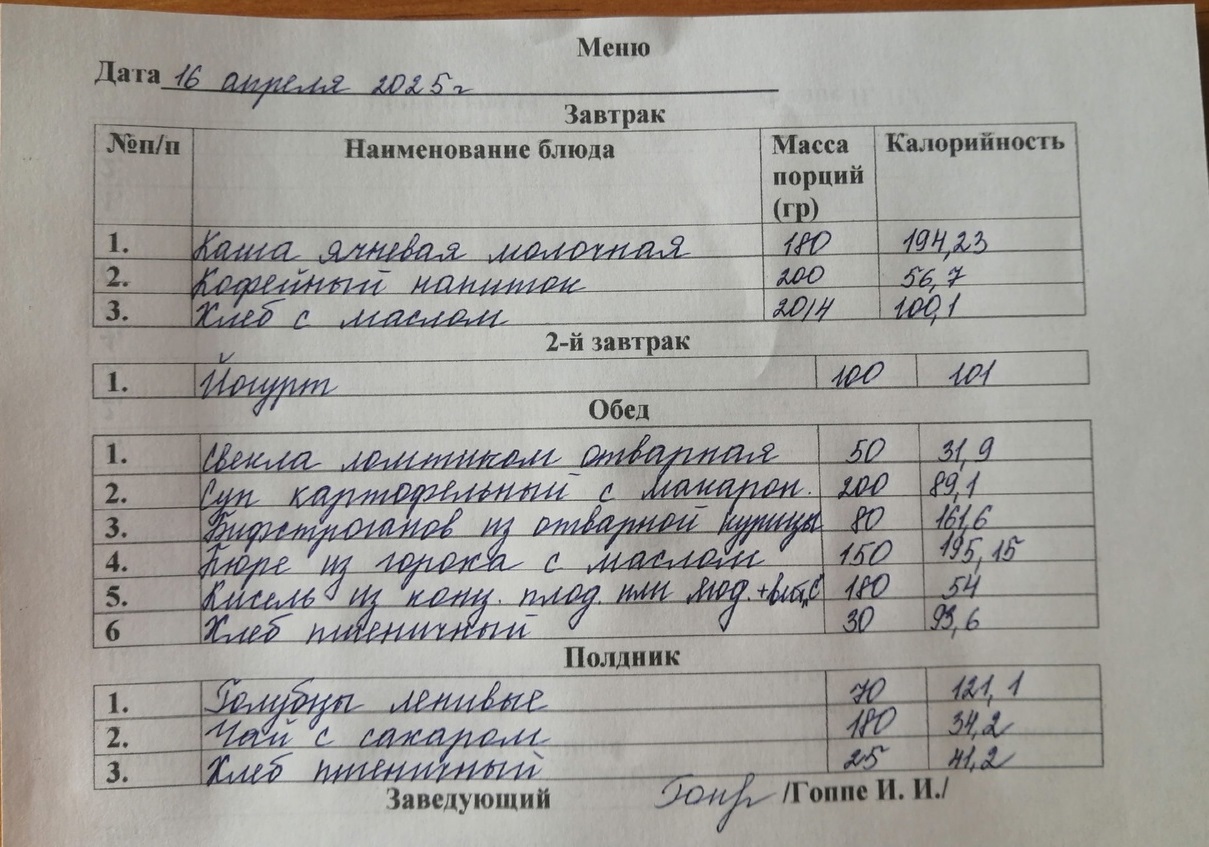 Меню
Дата 16 апреля 2025г
Завтрак
№п/п Наименование блюда Масса порций (гр) Калорийность
1. Каша ячневая молочная 180 194,23
2. Кофейный напиток 200 56,7
3. Хлеб с маслом 20/4 100,1
2-й завтрак
1. Йогурт 100 101
Обед
1. Свекла ломтиком отварная 50 31,9
2. Суп картофельный с макарон. 200 89,1
3. Бифстроганов из отварной курицы 80 161,6
4. Пюре из гороха с маслом 150 195,15
5. Кисель из конц. плод. или ягод. +вит,С 180 54
6 Хлеб пшеничный 30 93,6
Полдник
1. Голубцы ленивые 70 121,1
2. Чай с сахаром 180 34,2
3. Хлеб пшеничный 25 41,2
Заведующий /Гоппе И. И./